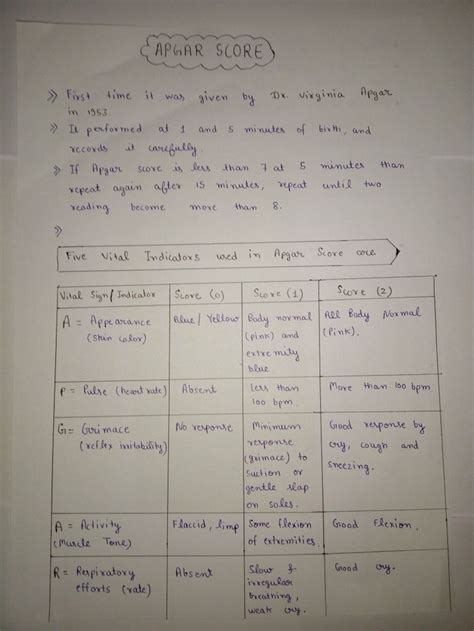 APGAR SCORE
» First time it was given by Dr. Virginia Apgar
in 1953.
» It performed at 1 and 5 minutes of birth, and
records it carefully.
» If Apgar score is less than 7 at 5 minutes than
repeat again after 15 minutes, repeat until two
reading become more than 8.
»
Five Vital Indicators used in Apgar Score are
Vital Sign/Indicator Score (0) Score (1) Score (2)
A = Appearance
(Skin color)
Blue/Yellow
Body normal
(pink) and
extremity
blue
All Body Normal
(Pink).
P = Pulse (heart rate)
Absent
less than
100 bpm
More than 100 bpm
G = Grimace
(reflex irritability)
No response
Minimum
response
(grimace) to
suction or
gentle slap
on soles.
Good response by
cry, cough and
sneezing.
A = Activity
(Muscle Tone)
Flaccid, limp
Some flexion
of extremities.
Good Flexion.
R = Respiratory
efforts (rate)
Absent
Slow &
irregular
breathing,
weak cry.
Good cry.